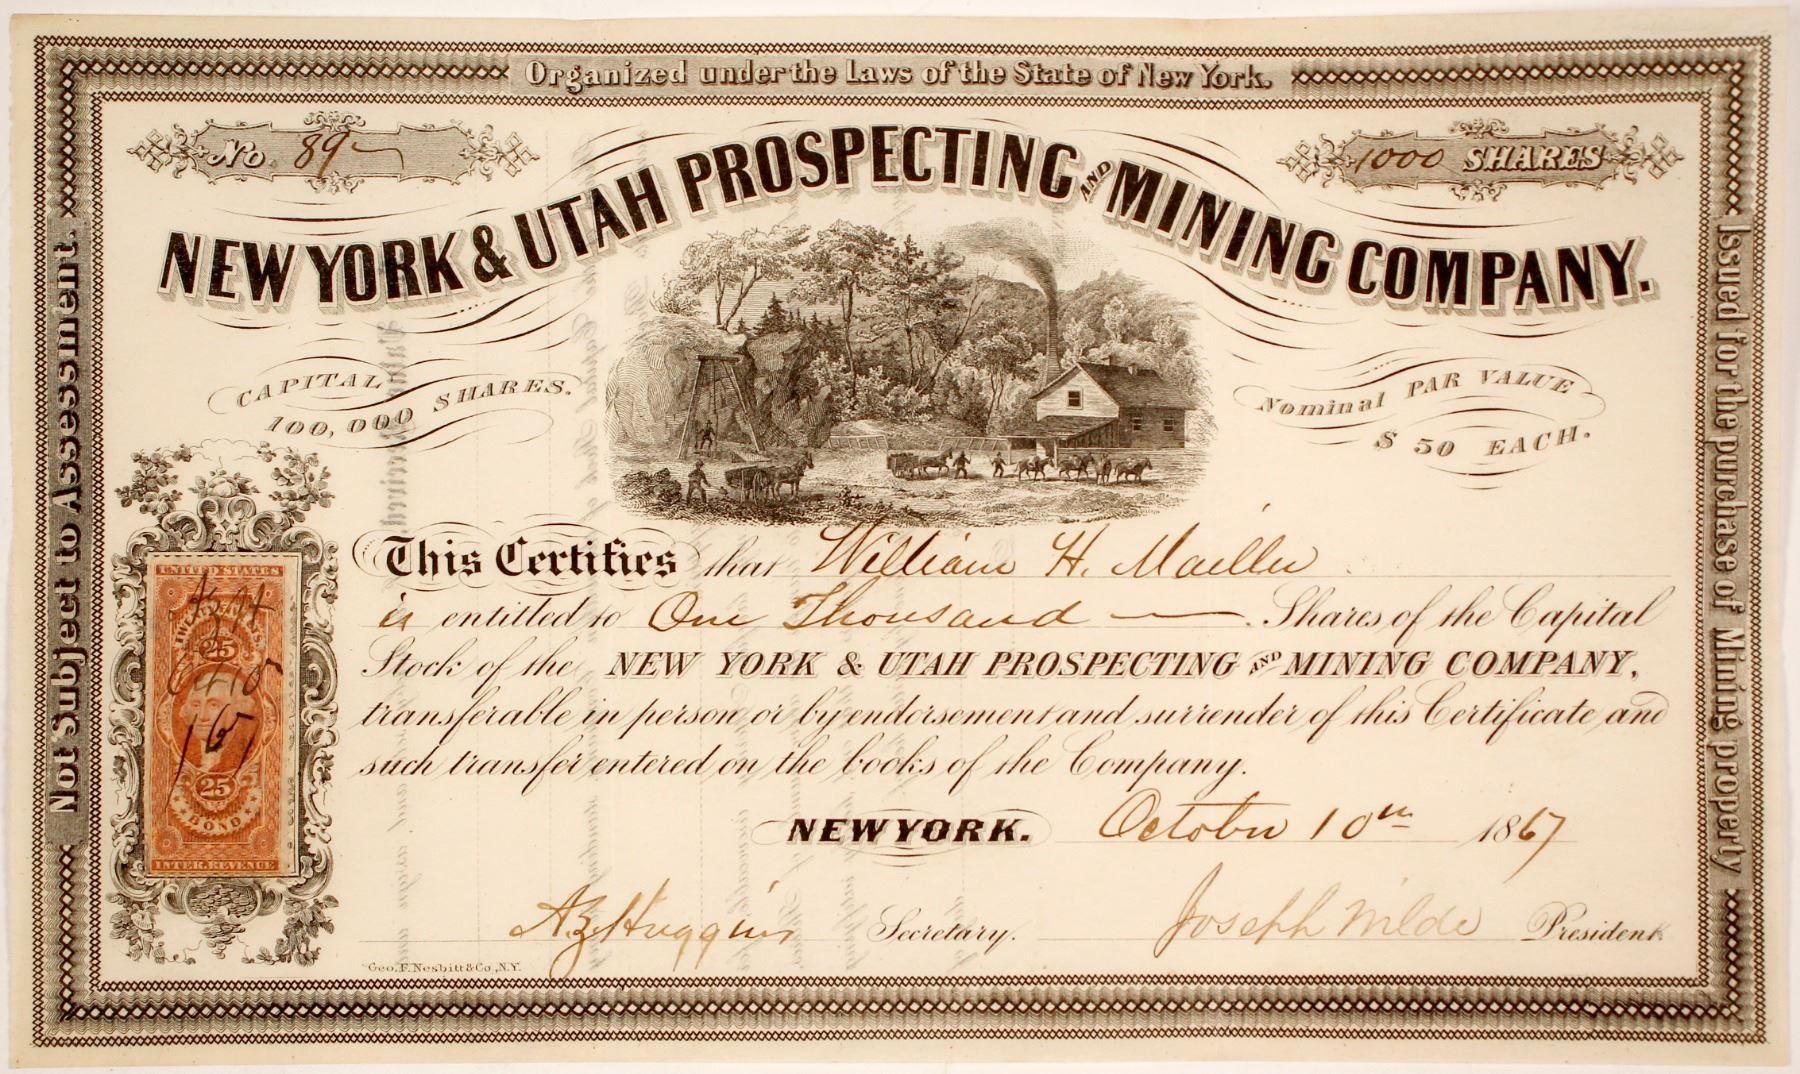 Organized under the Laws of the State of New York.
No. 89
1000 SHARES
NEW YORK & UTAH PROSPECTING AND MINING COMPANY.
CAPITAL
100,000 SHARES.
Nominal PAR VALUE
$ 50 EACH.
Not Subject to Assessment.
Issued for the purchase of Mining property
This Certifies that William H. Mailler
is entitled to One Thousand Shares of the Capital
Stock of the NEW YORK & UTAH PROSPECTING AND MINING COMPANY,
transferable in person or by endorsement and surrender of this Certificate and
such transfer entered on the books of the Company.
NEW YORK. October 10th 1867
A. Z. Huggins Secretary. Joseph Wilde President
Geo. F. Nesbitt & Co., N.Y.
UNITED STATES
25
Oct 10
25
BOND
INTER. REVENUE